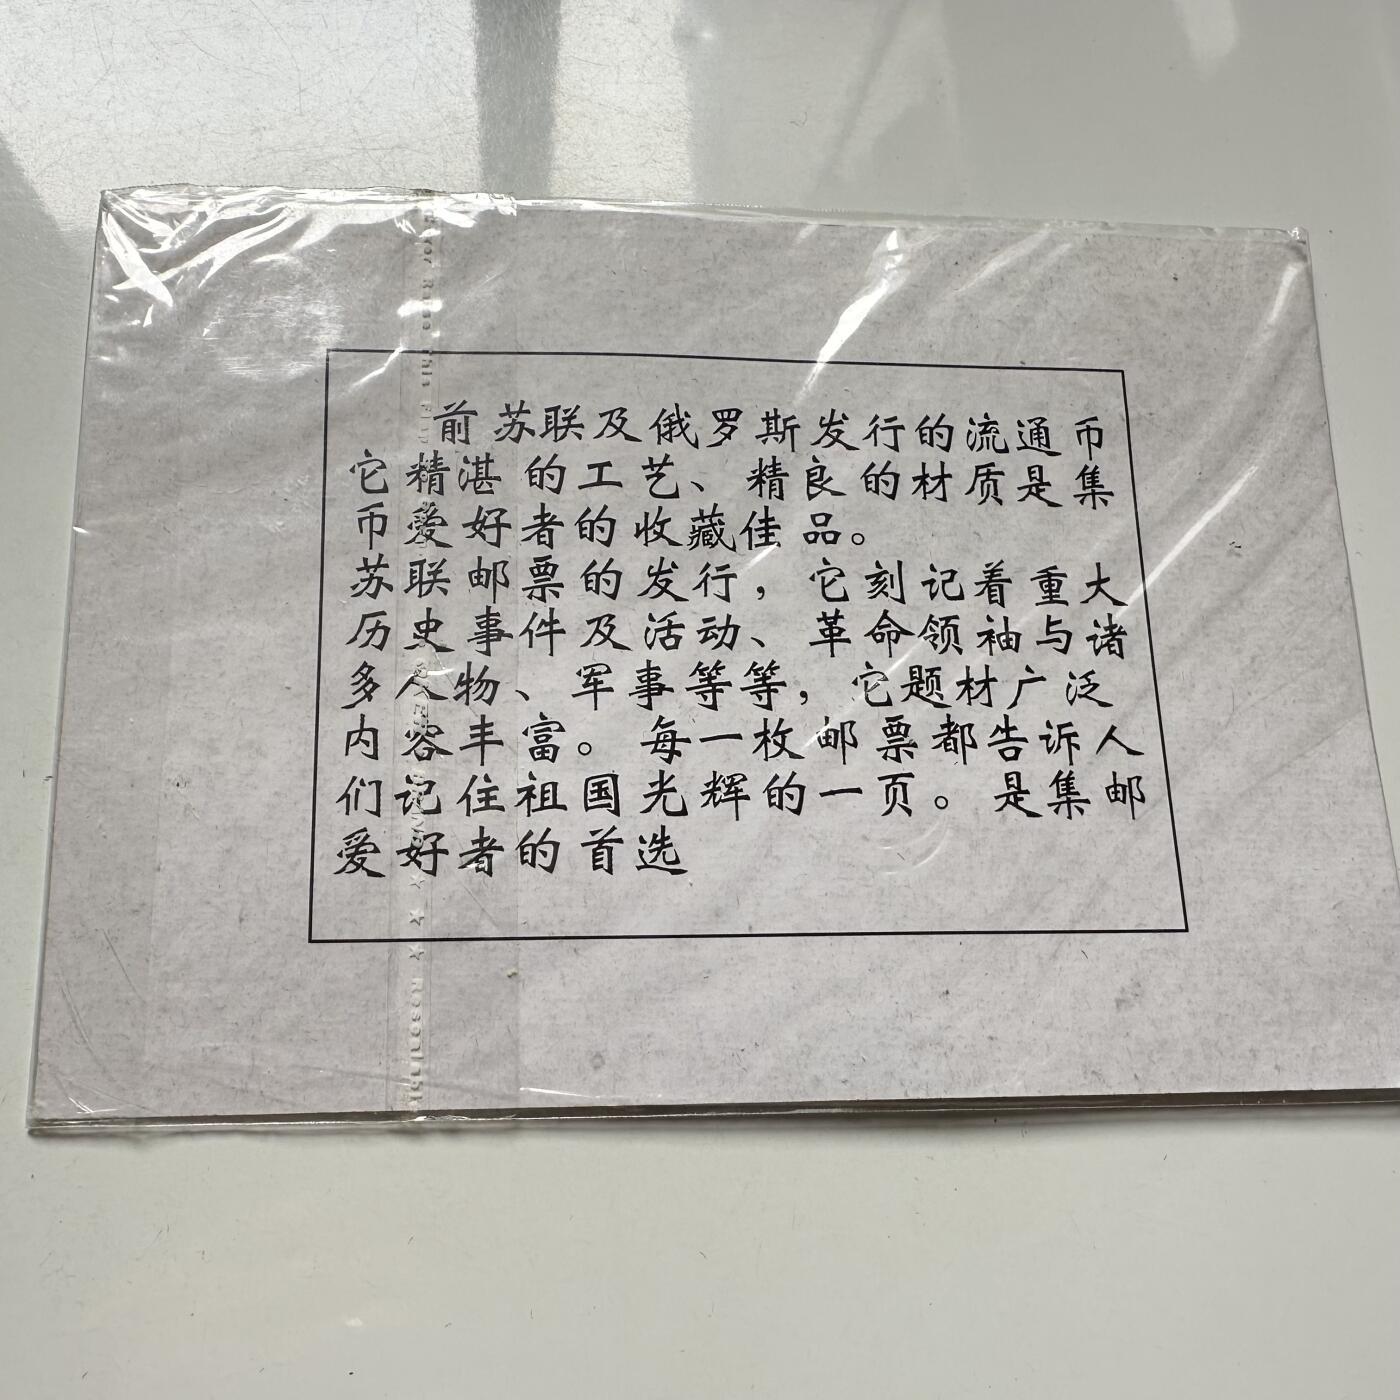 前苏联及俄罗斯发行的流通币
它精湛的工艺、精良的材质是集
币爱好者的收藏佳品。
苏联邮票的发行，它刻记着重大
历史事件及活动、革命领袖与诸
多人物、军事等等，它题材广泛
内容丰富。每一枚邮票都告诉人
们记住祖国光辉的一页。是集邮
爱好者的首选